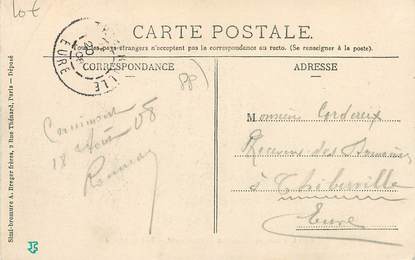 10€
CARTE POSTALE.
Tous les pays étrangers n'acceptent pas la correspondance au recto. (Se renseigner à la poste).
CORRESPONDANCE
ADRESSE
EURE
20
PP
18 Août 08
Monsieur Cordeux
Receveur des Domaines
à Thiberville
Eure
Simi-bromure A. Breger frères, 9 Rue Thénard, Paris — Déposé